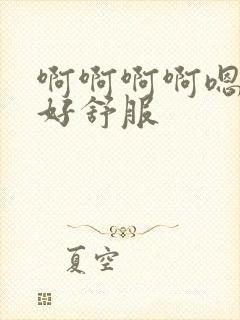 啊啊啊啊嗯
好舒服
夏空